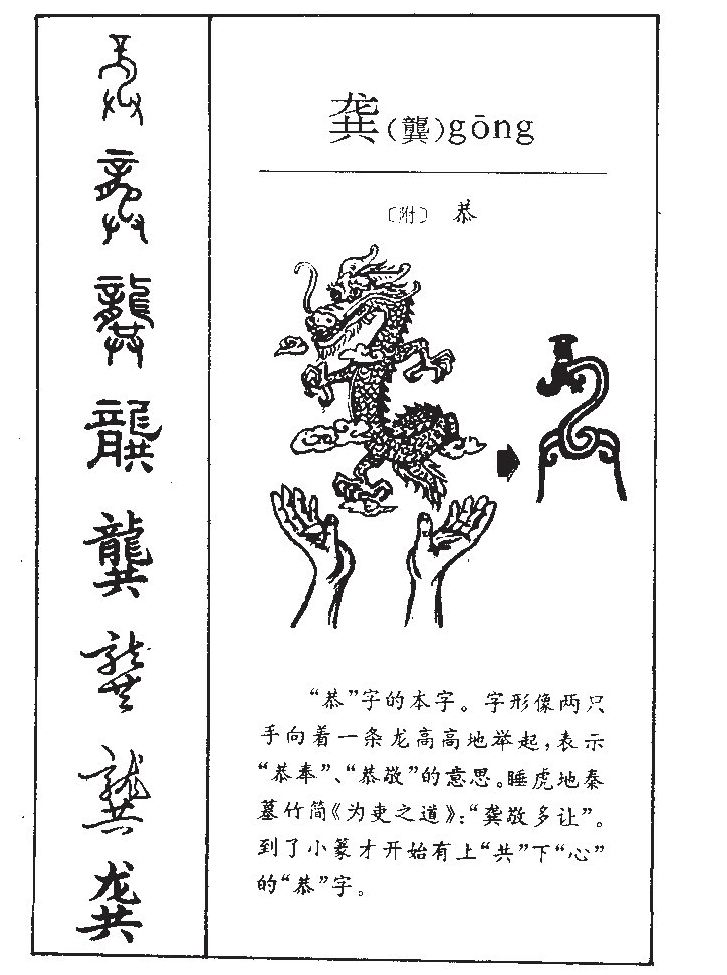 龚(龔)gōng
〔附〕 恭
“恭”字的本字。字形像两只
手向着一条龙高高地举起，表示
“恭奉”、“恭敬”的意思。睡虎地秦
墓竹简《为吏之道》：“龚敬多让”。
到了小篆才开始有上“共”下“心”
的“恭”字。
龔
龔
龔
龔
龔
龔
龔
龚